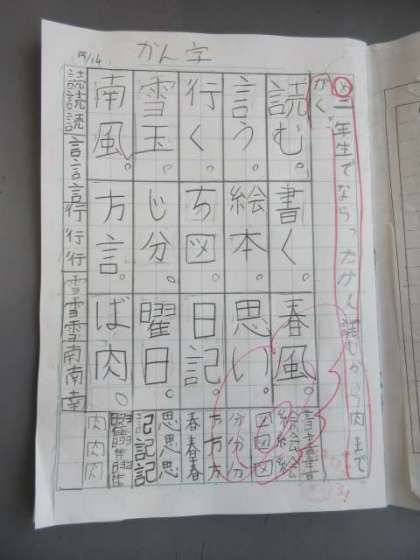 5/14
かん字
め 二年生でならったかん字 読むから肉まで
かく。
読む。
書く。
春風。
言う。
絵本。
思い。
行く。
ち図。
日記。
雪玉。
じ分。
曜日。
南風。
方言。
ば肉。
読読読
言言言
行行行
雪雪雪
南南南
書書書
絵絵絵
図図図
分分分
方方方
春春春
思思思
記記記
曜曜曜
肉肉肉